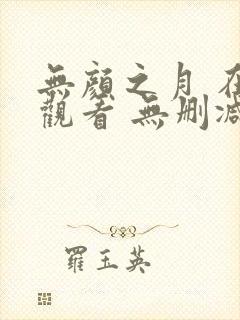 無顏之月 在
觀看 無刪減
羅玉英